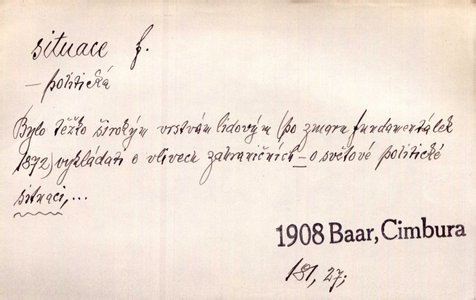 situace f.
– politická
Bylo těžko širokým vrstvám lidovým (po zmaru fundamentálek
1872) vykládati o vlivech zahraničních – o světové politické
situaci,...
1908 Baar, Cimbura
181, 27;